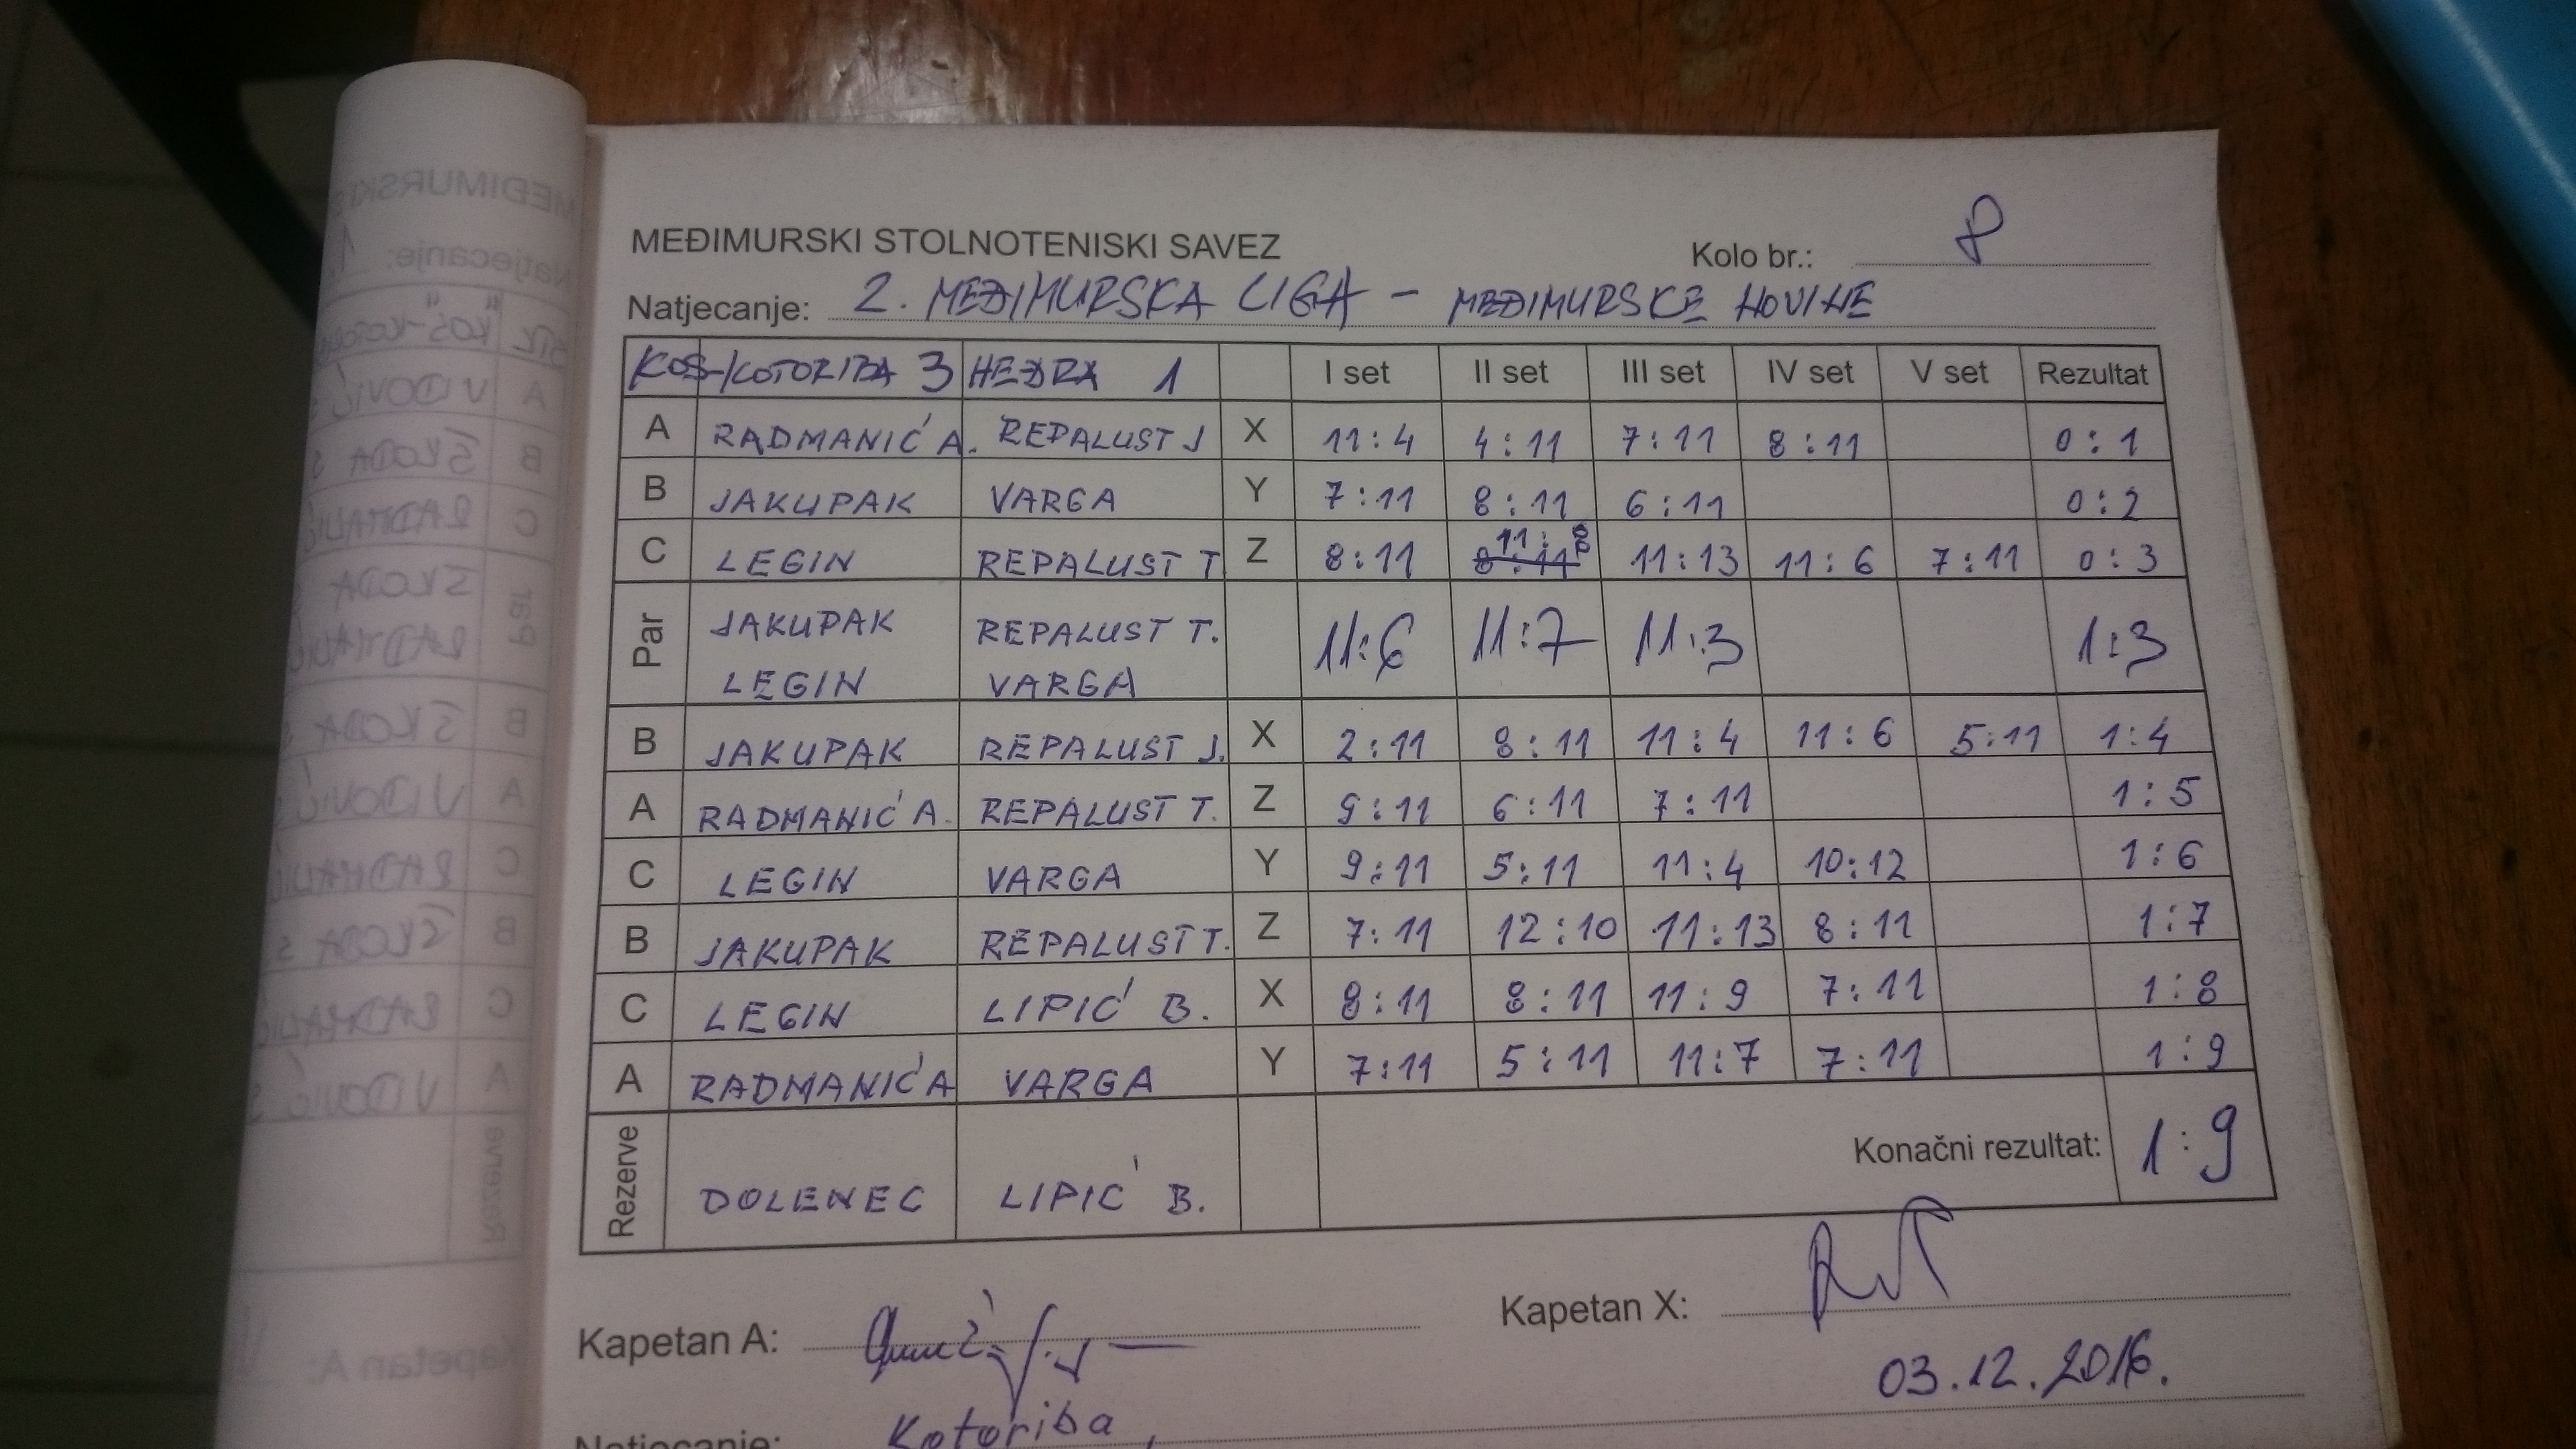 MEĐIMURSKI STOLNOTENISKI SAVEZ
Kolo br.: 8
Natjecanje: 2. MEĐIMURSKA LIGA - MEĐIMURSKE NOVINE
KOŠ-KOTORIBA 3 NEDRA 1 I set II set III set IV set V set Rezultat
A RADMANIĆ A. REPALUST J X 11:4 4:11 7:11 8:11 0:1
B JAKUPAK VARGA Y 7:11 8:11 6:11 0:2
C LEGIN REPALUST T Z 8:11 8:11 11:8 11:13 11:6 7:11 0:3
Par JAKUPAK REPALUST T. 11:6 11:7 11:3 1:3
LEGIN VARGA
B JAKUPAK REPALUST J. X 2:11 8:11 11:4 11:6 5:11 1:4
A RADMANIĆ A. REPALUST T. Z 9:11 6:11 7:11 1:5
C LEGIN VARGA Y 9:11 5:11 11:4 10:12 1:6
B JAKUPAK REPALUST T. Z 7:11 12:10 11:13 8:11 1:7
C LEGIN LIPIĆ B. X 8:11 8:11 11:9 7:11 1:8
A RADMANIĆ A VARGA Y 7:11 5:11 11:7 7:11 1:9
Rezerve DOLENEC LIPIĆ B. Konačni rezultat: 1:9
Kapetan A:
Kapetan X:
03.12.2016.
Natjecanje: Kotoriba,